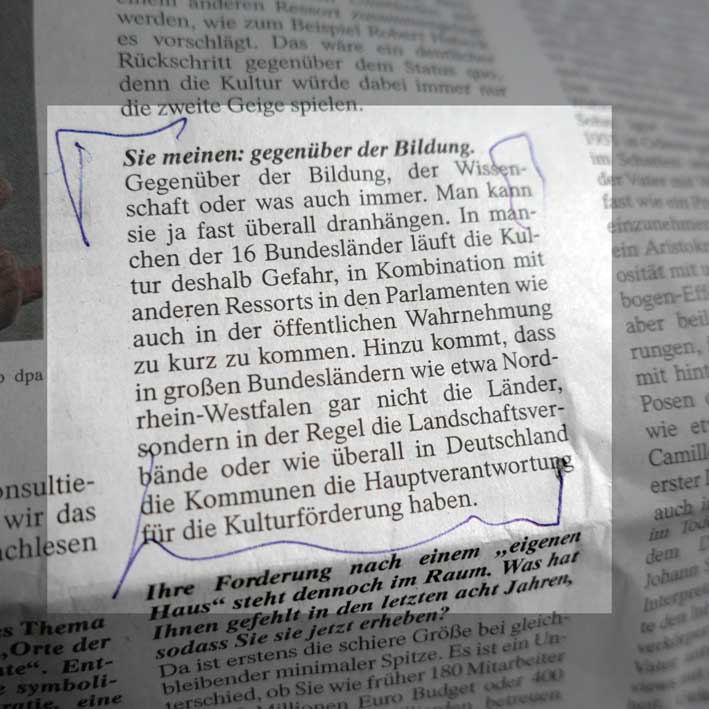 einem anderen Ressort
werden, wie zum Beispiel Robert
es vorschlägt. Das wäre ein deutlicher
Rückschritt gegenüber dem Status quo,
denn die Kultur würde dabei immer nur
die zweite Geige spielen.
Sie meinen: gegenüber der Bildung.
Gegenüber der Bildung, der Wissen-
schaft oder was auch immer. Man kann
sie ja fast überall dranhängen. In man-
chen der 16 Bundesländer läuft die Kul-
tur deshalb Gefahr, in Kombination mit
anderen Ressorts in den Parlamenten wie
auch in der öffentlichen Wahrnehmung
zu kurz zu kommen. Hinzu kommt, dass
in großen Bundesländern wie etwa Nord-
rhein-Westfalen gar nicht die Länder,
sondern in der Regel die Landschaftsver-
bände oder wie überall in Deutschland
die Kommunen die Hauptverantwortung
für die Kulturförderung haben.
Ihre Forderung nach einem „eigenen
Haus“ steht dennoch im Raum. Was hat
Ihnen gefehlt in den letzten acht Jahren,
sodass Sie sie jetzt erheben?
Da ist erstens die schiere Größe bei gleich-
bleibender minimaler Spitze. Es ist ein Un-
terschied, ob Sie wie früher 180 Mitarbeiter
Euro Budget oder 400
betreuen
dpa
onsultie-
wir das
achlesen
s Thema
„Orte der
te“. Ent-
symboli-
eine
im
der Vater
fast wie ein
einzunehmen
ein Aristok
osität mit u
bogen-Eff
aber beil
rungen,
mit hint
Posen
wie et
Camill
erster
auch i
im Tod
dem D
Johann S
Interpre
te den
Vater